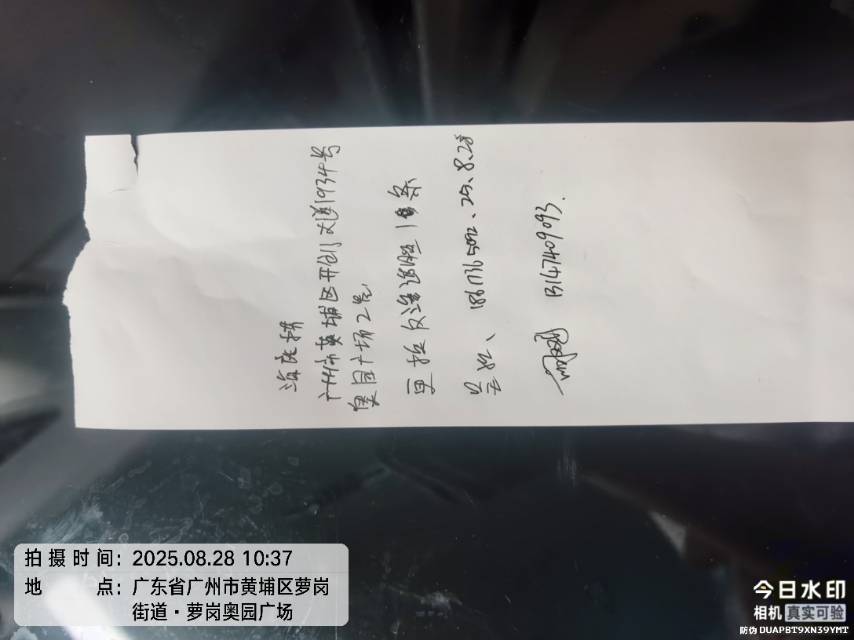 海底捞
广州市黄埔区开创大道1934号
奥园广场2号
更换反渗透膜1条
25.8.28
13147409093.
拍摄时间: 2025.08.28 10:37
地 点: 广东省广州市黄埔区萝岗
街道·萝岗奥园广场
今日水印
相机 真实可验
防伪 DUAPBT9XN39YMT